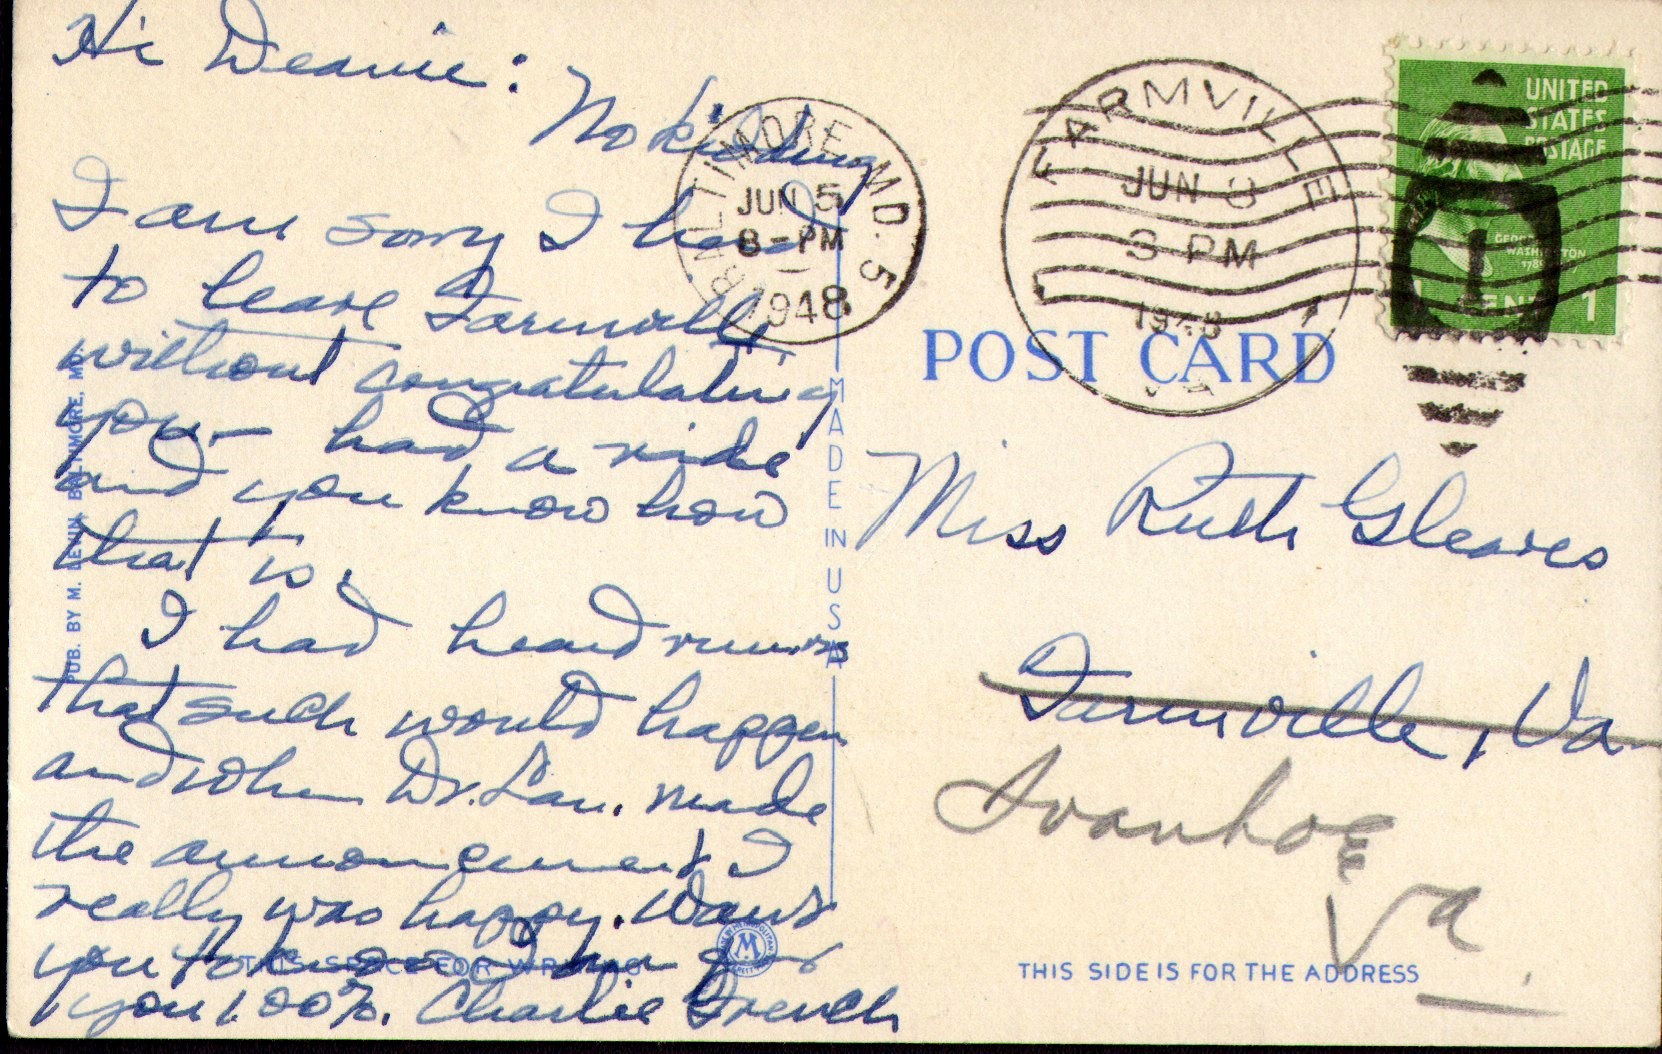 Hi Deanie:
No kidding
I am sorry I had
to leave Farmville
without congratulating
you - had a ride
and you know how
that is.
I had heard rumors
that such would happen
and when Dr. Lan. made
the announcement I
really was happy. Want
you to know I am for
you 100%. Charlie French
PUB. BY M. LEVIN, BALTIMORE, MD.
THIS SPACE FOR WRITING
M
BALTIMORE, MD. 5
JUN 5
8-PM
1948
MADE IN USA
FARMVILLE
JUN 8
3 PM
1948
VA
UNITED
STATES
POSTAGE
GEORGE
WASHINGTON
1789
1 CENT 1
1
POST CARD
Miss Ruth Gleaves
Farmville, Va.
Ivanhoe
Va.
THIS SIDE IS FOR THE ADDRESS